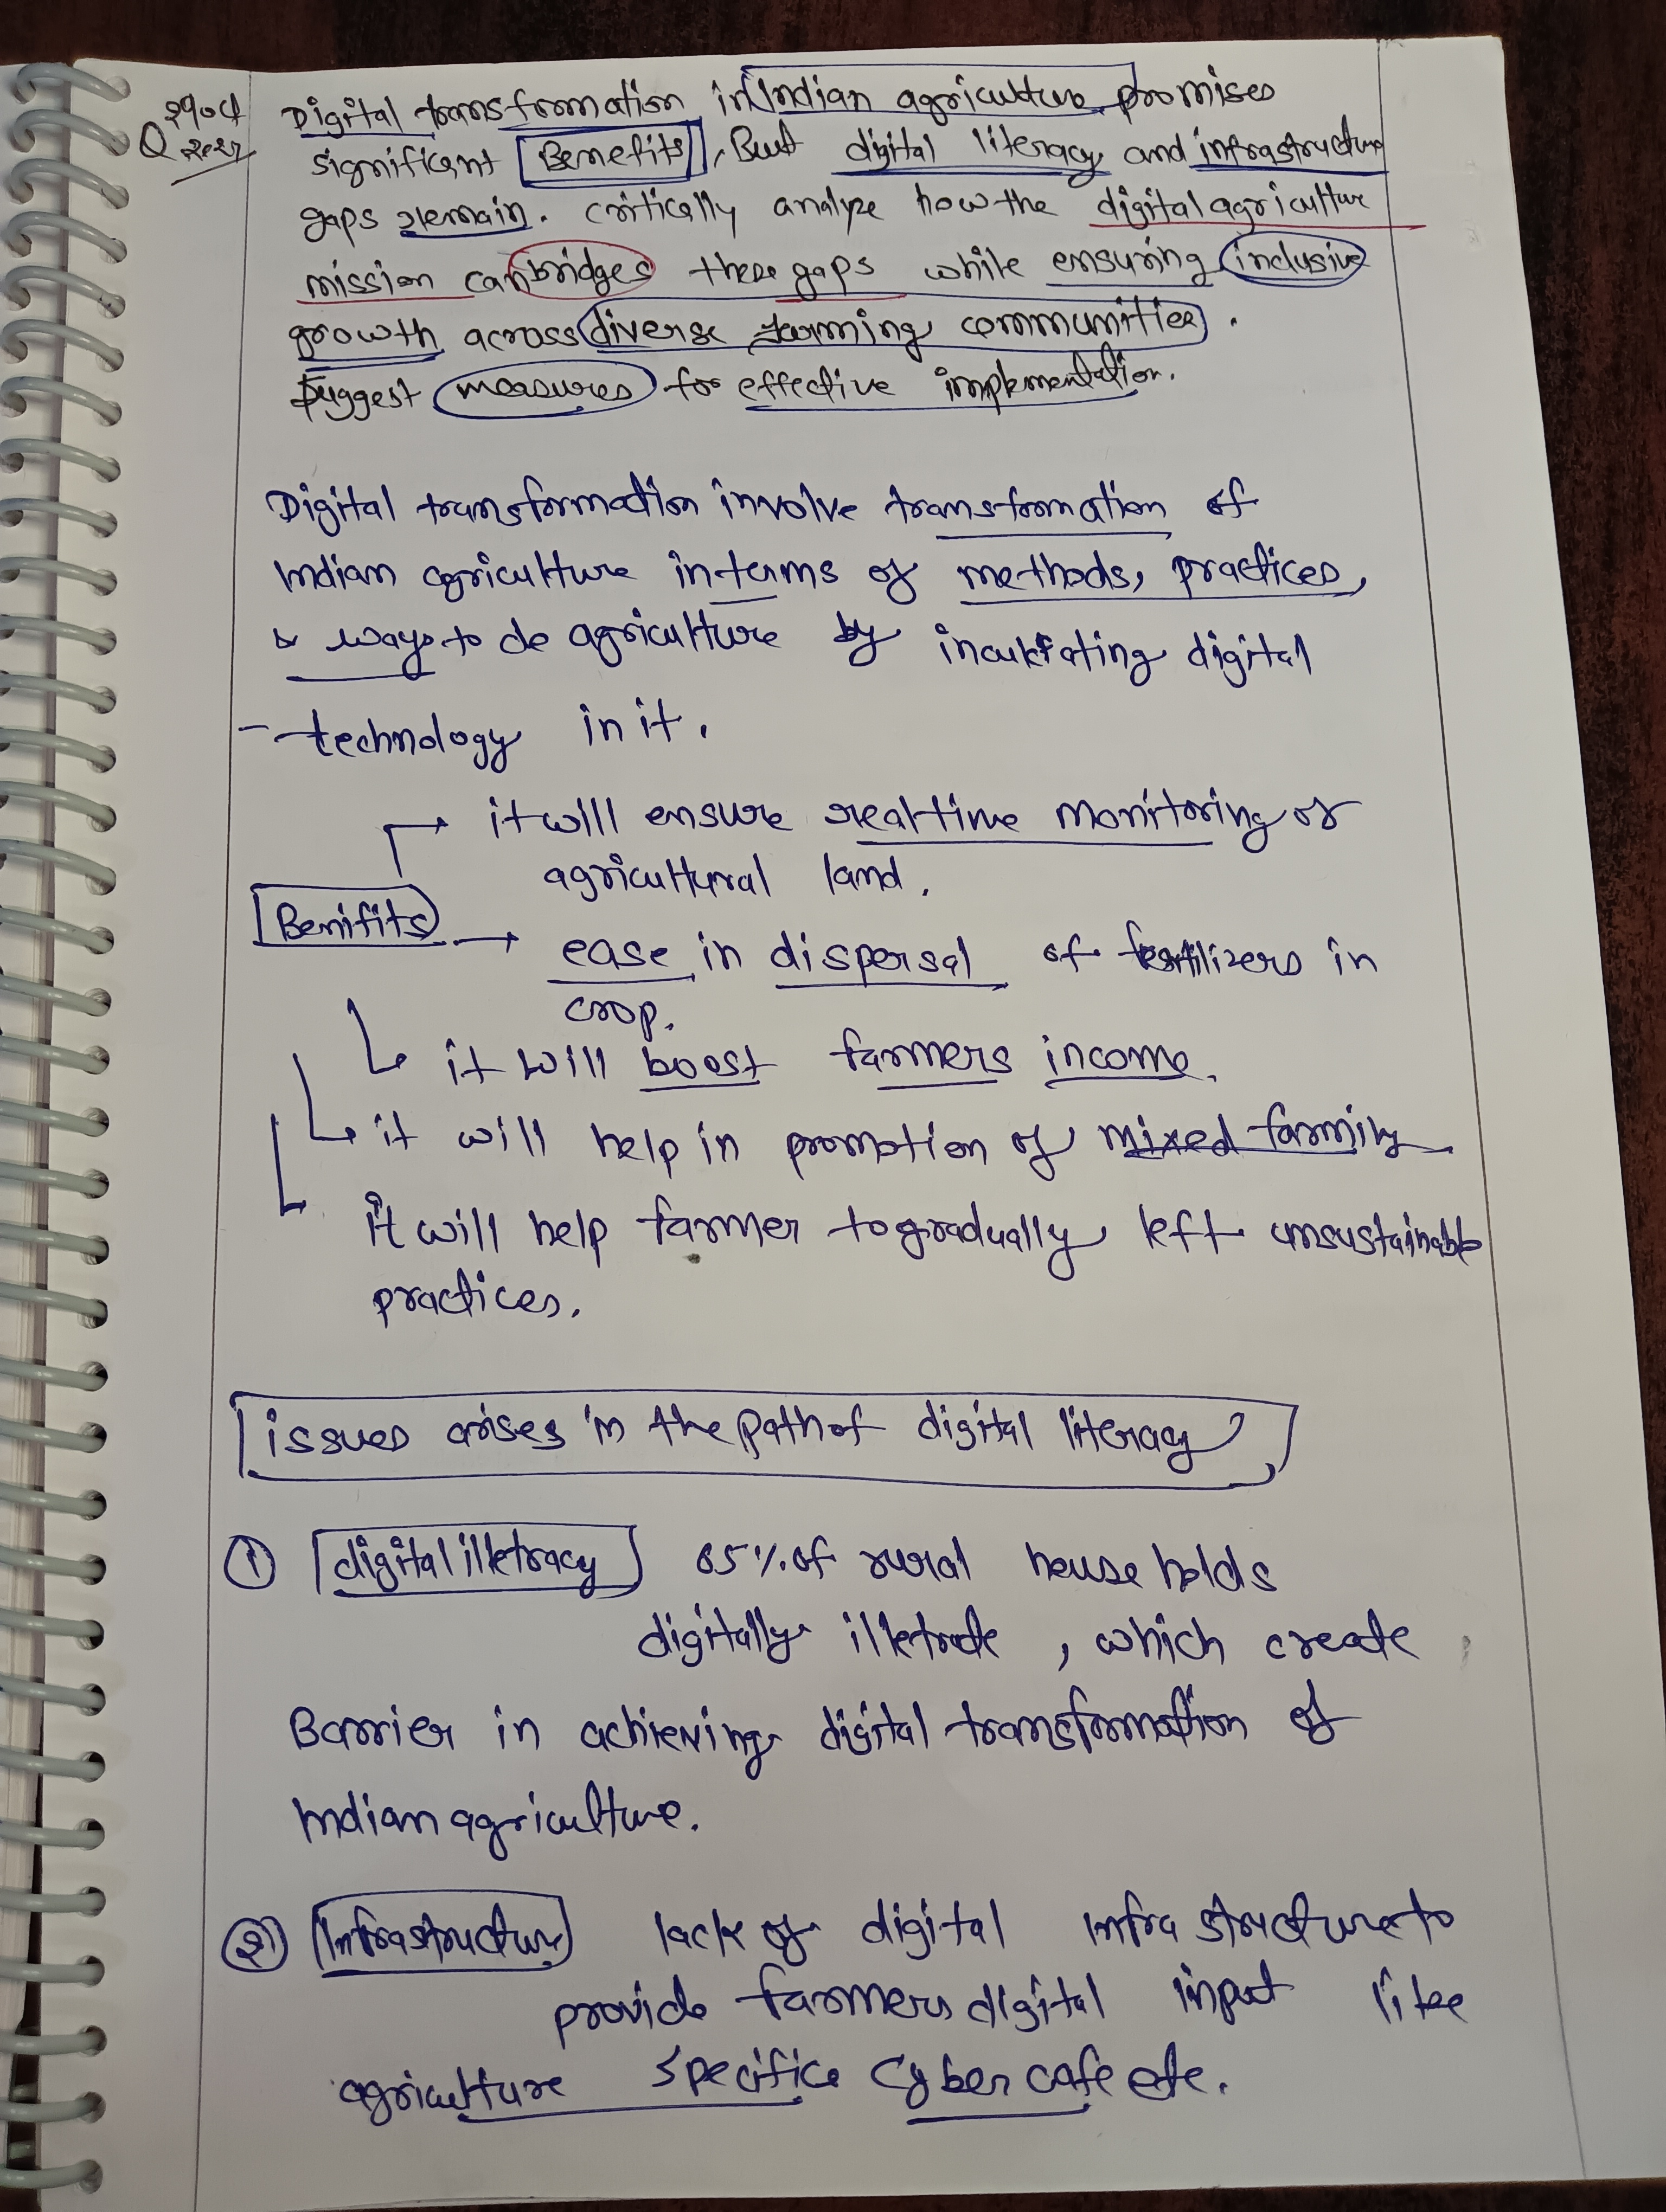 Digital transfromation in Indian agriculture promises
significant Benefits, But digital literacy and infrastructure
gaps remain. critically analyze how the digital agriculture
mission can bridges these gaps while ensuring inclusive
growth across diverse farming communities.
suggest measures for effective implementation.
Digital transformation involve transfromation of
Indian agriculture in terms of methods, practices,
& ways to do agriculture by digital
technology in it.
it will ensure realtime monitoring of
agricultural land.
Benifits
ease in dispersal of fertilizers in
crop.
it will boost farmers income.
it will help in promotion of mixed farming
it will help farmer to gradually left unsustainable
practices.
issues arises in the path of digital literacy
① digital illetracy 65% of rural house holds
digitally illetrate, which create
Barrier in achieving digital transformation of
Indian agriculture.
② Infrastructure lack of digital infra structure to
provide farmers digital input like
agriculture specifice Cyber cafe etc.